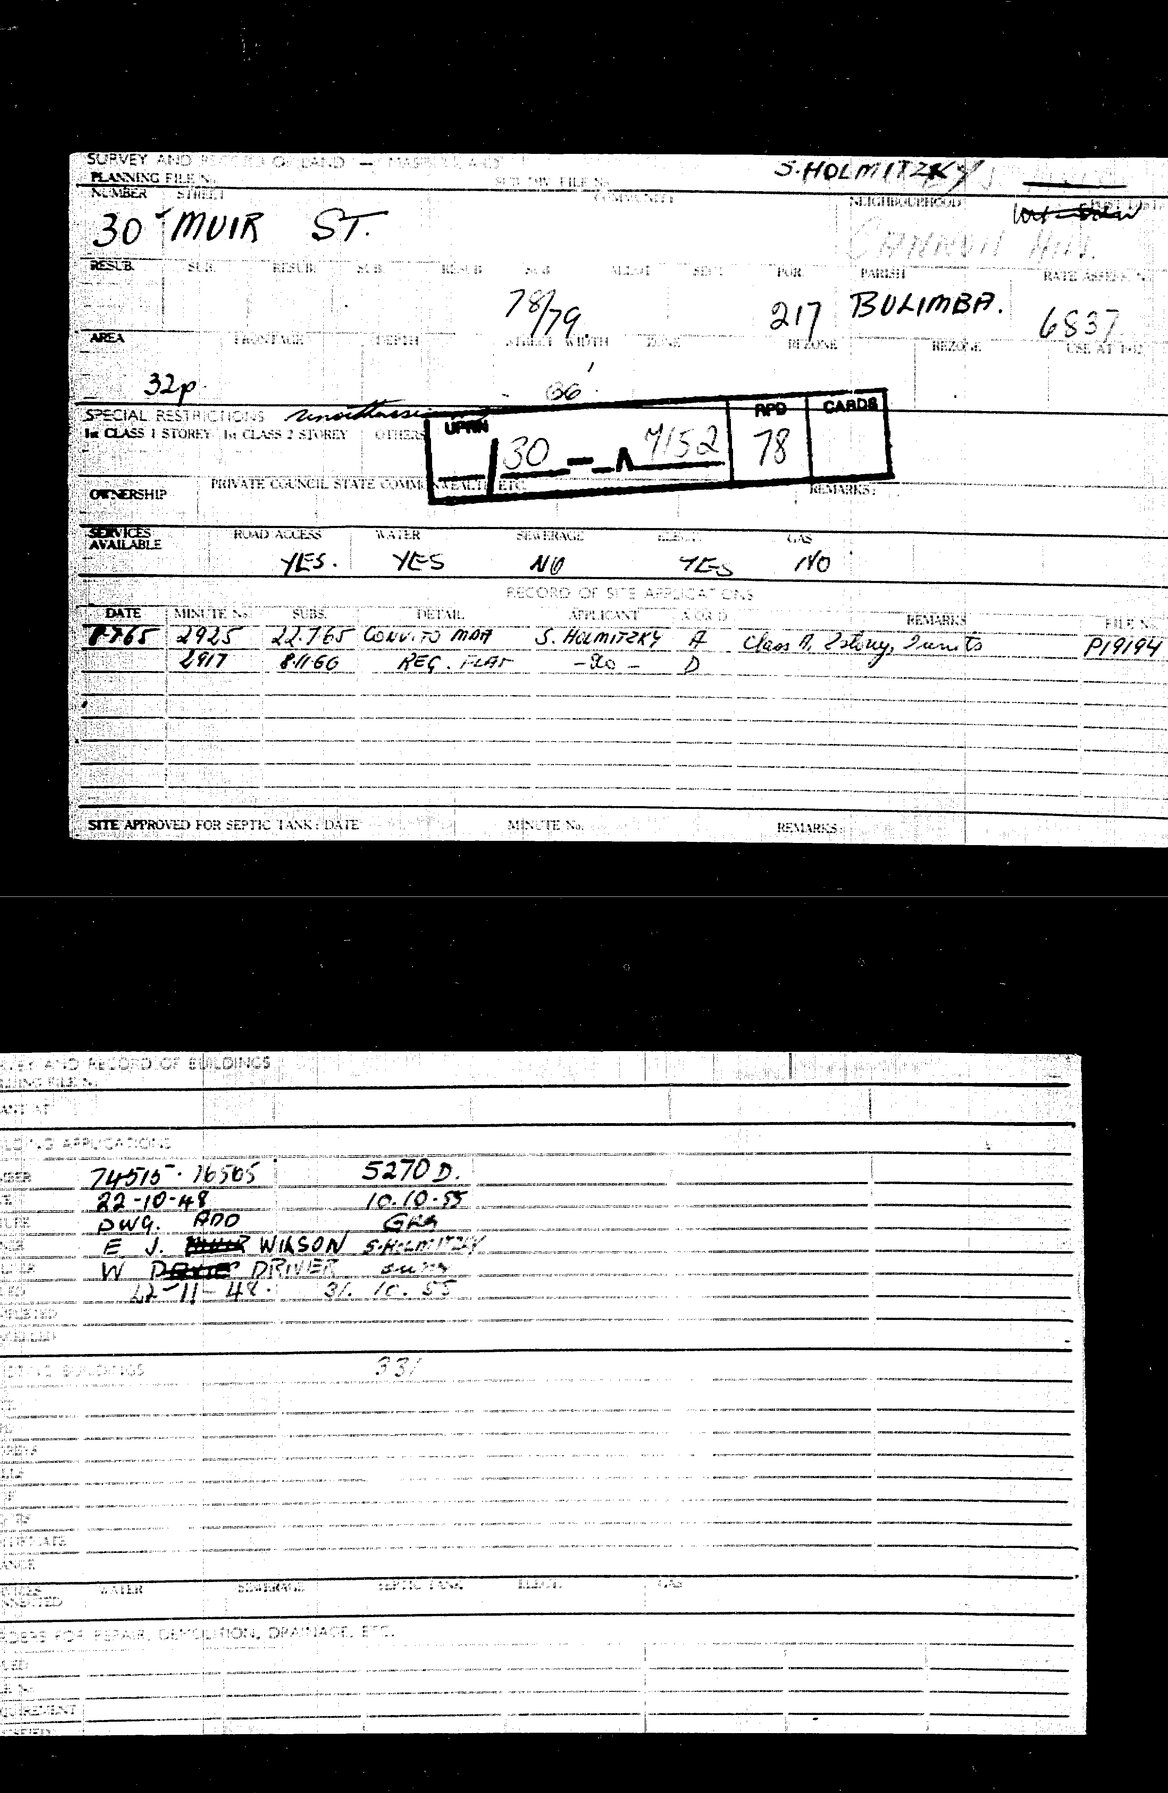 SURVEY AND RECORD OF LAND —
S. HOLMITZKY
PLANNING FILE No. SUB. DIV. FILE No.
NUMBER STREET COMMUNITY NEIGHBOURHOOD
30 MUIR ST. CANNON HILL.
RESUB. SUB. RESUB. SUB. RESUB. SUB. ALLOT. SECT. POR. PARISH RATE ASSESS. No.
78/79. 217 BULIMBA. 6837
AREA FRONTAGE DEPTH STREET WIDTH ZONE REZONE REZONE USE AT
32p. 66'
SPECIAL RESTRICTIONS
1st CLASS 1 STOREY 1st CLASS 2 STOREY OTHERS
UPRN RPD CARDS
30 — A 7152 78
OWNERSHIP PRIVATE COUNCIL STATE COMMONWEALTH ETC. REMARKS:
SERVICES AVAILABLE ROAD ACCESS WATER SEWERAGE ELECT. GAS
YES. YES NO YES NO
RECORD OF SITE APPLICATIONS
DATE MINUTE No. SUBS. DETAIL APPLICANT A OR D REMARKS FILE No.
8.7.65 2925 22.7.65 CONV. TO MDA S. HOLMITZKY A Class A, 2 storey, 2 units P19194
2917 8.11.66 REG. FLAT -do- D
SITE APPROVED FOR SEPTIC TANK: DATE MINUTE No. REMARKS:
VEY AND RECORD OF BUILDINGS
NING FILE No.
ANT AT
LDING APPLICATIONS
BER 74515 - 16505 5270 D.
22-10-48 10.10.55
DWG. ADD GRG
E J. WILSON S. HOLMITZKY
W DRIVER
22-11-48. 31.10.55
331
TIFICATE
ANCE
VICES NNECTED WATER SEWERAGE SEPTIC TANK ELECT. GAS
RDERS FOR REPAIR, DEMOLITION, DRAINAGE, ETC.
UED
LE No.
QUIREMENT